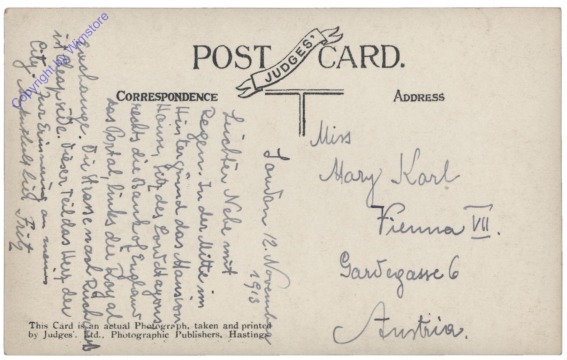 POST CARD.
JUDGES'
CORRESPONDENCE
ADDRESS
London 12. November
1913
Leichter Nebel mit
Regen. In der Mitte im
Hintergrund das Mansion
House, Sitz des Lord Mayors
rechts die Bank of England
das Portal, links die Royal
Exchange. Die Strasse nach
ist Cheapside. Dieser Teil das Herz der
City. Zur Erinnerung an meinen
Fritz
Miss
Mary Karl
Vienna VII.
Gardegasse 6
Austria.
This Card is an actual Photograph, taken and printed
by Judges', Ltd., Photographic Publishers, Hastings
Copyright by Wimstore